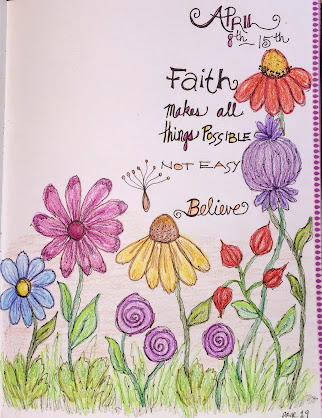 APRIL
8th - 15th
Faith
makes all
things POSSIBLE
NOT EASY
Believe
PAGE 29